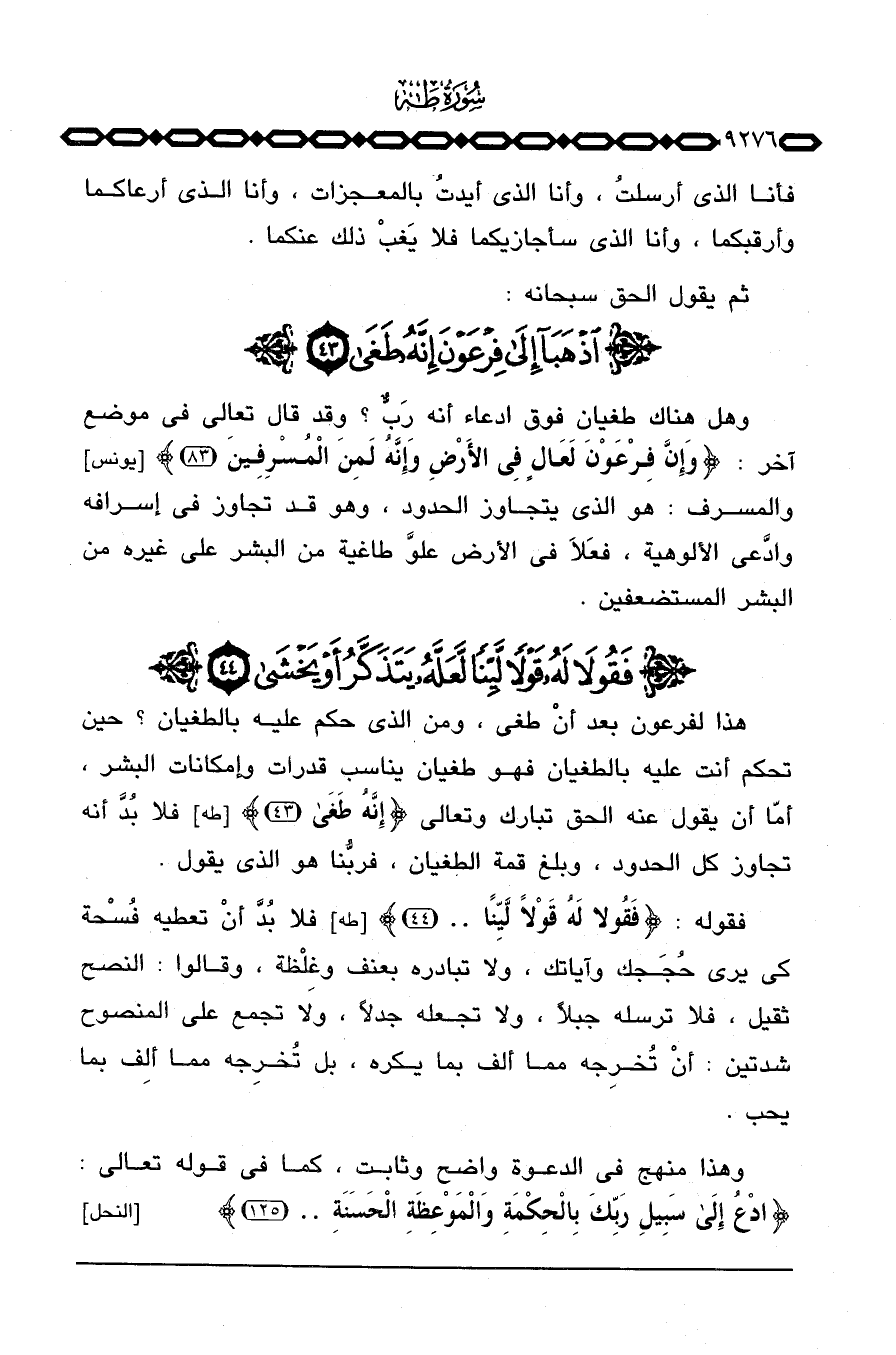 سُورَةُ طٰهٰ
٩٢٧٦
فأنـا الذى أرسلتُ ، وأنا الذى أيدتُ بالمعـجزات ، وأنا الـذى أرعاكـما
وأرقبكما ، وأنا الذى سـأجازيكما فلا يَغبْ ذلك عنكما .
ثم يقول الحق سبحانه :
﴿ ٱذْهَبَآ إِلَىٰ فِرْعَوْنَ إِنَّهُۥ طَغَىٰ ٤٣ ﴾
وهل هناك طغيان فوق ادعاء أنه رَبٌّ ؟ وقد قال تعالى فى موضع
آخر : ﴿ وَإِنَّ فِرْعَوْنَ لَعَالٍ فِى الأَرْضِ وَإِنَّهُ لَمِنَ الْمُسْرِفِينَ (٨٣) ﴾ [يونس]
والمسـرف : هو الذى يتجـاوز الحدود ، وهو قـد تجاوز فى إسـرافه
وادَّعى الألوهية ، فعَلاَ فى الأرض علوَّ طاغية من البشر على غيره من
البشر المستضعفين .
﴿ فَقُولَا لَهُۥ قَوْلًا لَّيِّنًا لَّعَلَّهُۥ يَتَذَكَّرُ أَوْ يَخْشَىٰ ٤٤ ﴾
هذا لفرعون بعد أنْ طغى ، ومن الذى حكم عليـه بالطغيان ؟ حين
تحكم أنت عليه بالطغيان فهـو طغيان يناسب قدرات وإمكانات البشر ،
أمّا أن يقول عنه الحق تبارك وتعالى ﴿ إِنَّهُ طَغَىٰ (٤٣) ﴾ [طه] فلا بُدَّ أنه
تجاوز كل الحدود ، وبلغ قمة الطغيان ، فربُّنا هو الذى يقول .
فقوله : ﴿ فَقُولا لَهُ قَوْلاً لَّيِّنًا .. (٤٤) ﴾ [طه] فلا بُدَّ أنْ تعطيه فُسْحة
كى يرى حُجَـجك وآياتك ، ولا تبادره بعنف وغِلْظة ، وقـالوا : النصح
ثقيل ، فلا ترسله جبلاً ، ولا تجـعله جدلاً ، ولا تجمع على المنصوح
شدتين : أنْ تُخـرِجه ممـا ألف بما يـكره ، بل تُخـرِجه ممـا ألِف بما
يحب .
وهذا منهج فى الدعـوة واضح وثابت ، كمـا فى قـوله تعـالى :
﴿ ادْعُ إِلَىٰ سَبِيلِ رَبِّكَ بِالْحِكْمَةِ وَالْمَوْعِظَةِ الْحَسَنَةِ .. (١٢٥) ﴾ [النحل]